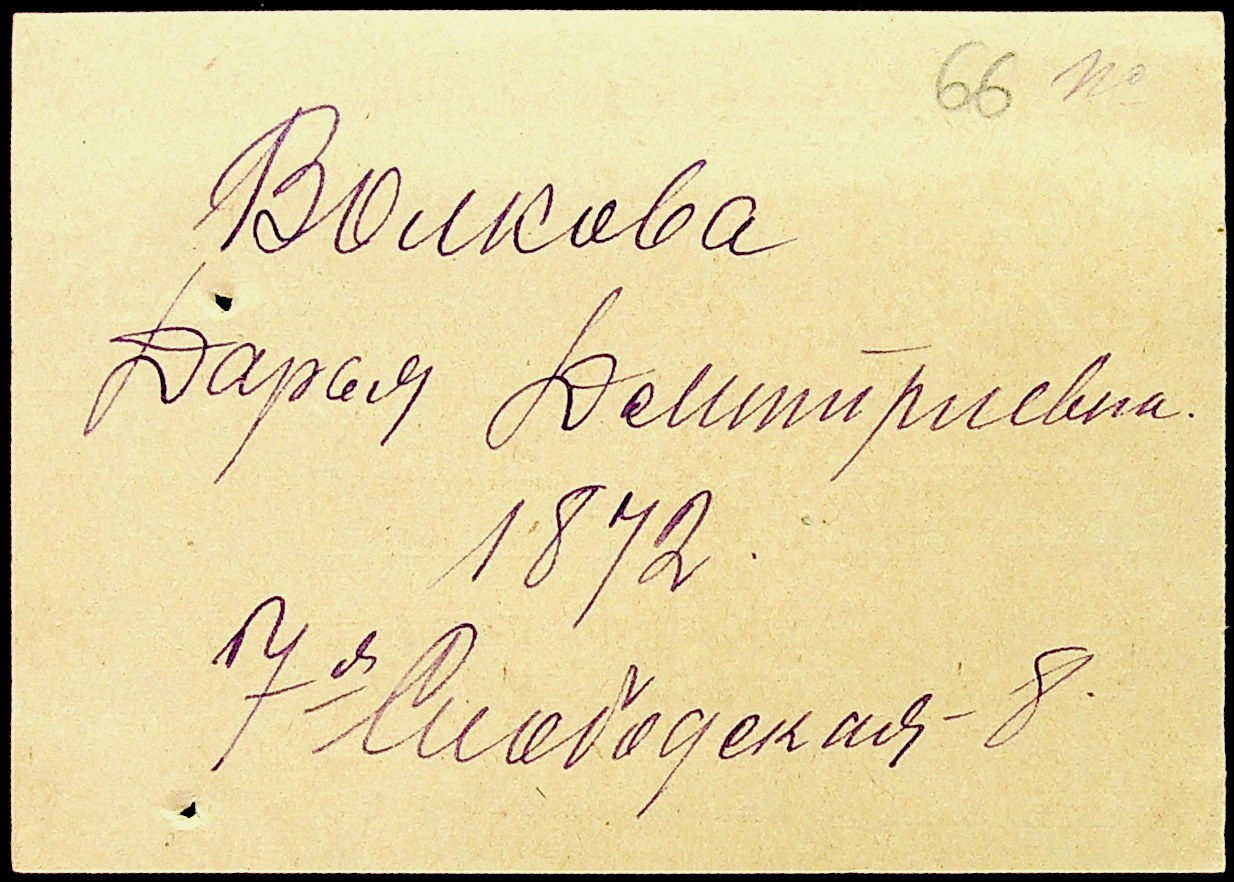 66
Волкова
Дарья Демитриевна.
1872.
7-я Слободская - 8.